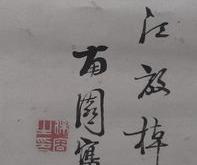 江放棹
南園寫